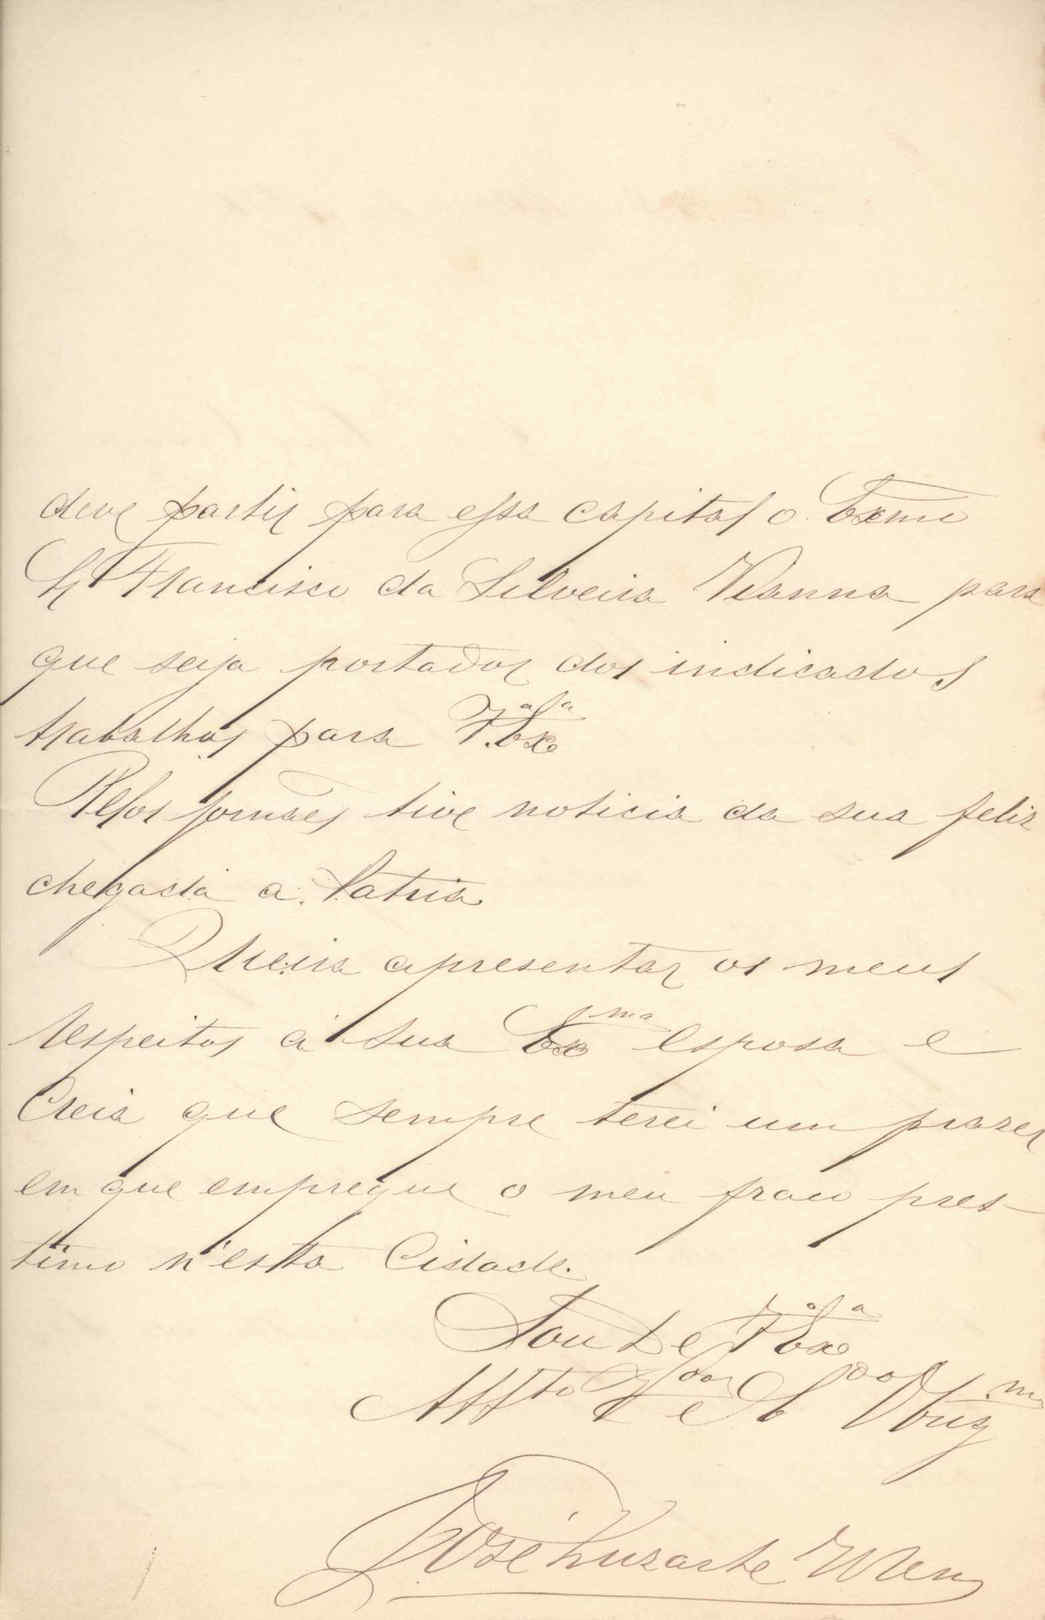 deve partir para essa capital o Exmo
Sr Francisco da Silveira Vianna para
que seja portador dos indicados
trabalhos para V. Exª
Pelos jornaes tive noticia da sua feliz
chegada a Patria.
Queira apresentar os meus
respeitos á sua Exma esposa e
Creia que sempre terei um prazer
em que empregue o meu fraco pres-
timo n'esta Cidade.
Sou De V Exª
Affto Vor e Cro Obrigmo
José Luzarte